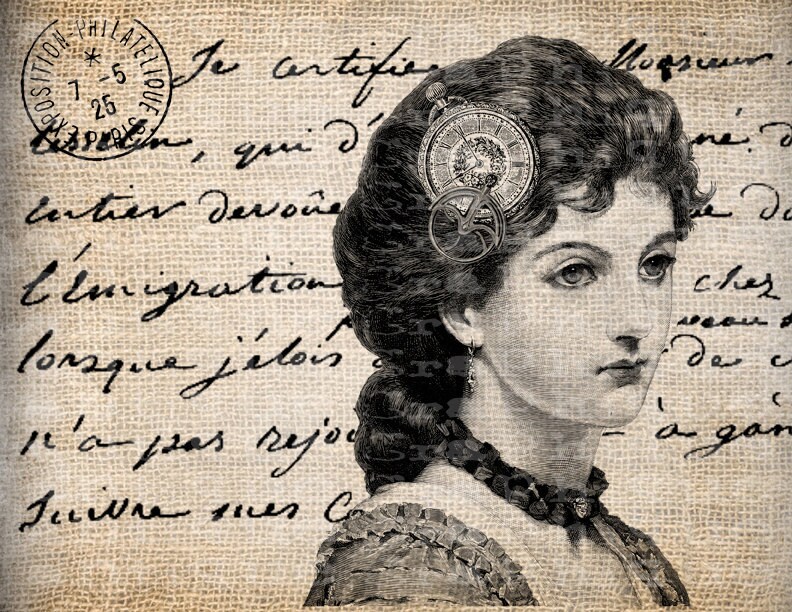 EXPOSITION-PHILATELIQUE
7 -5
25
PARIS
Je certifie Monsieur
qui d' né.
entier devoûe
l'Emigration chez
lorsque j'élois de
n'a pas à
Suivre mes